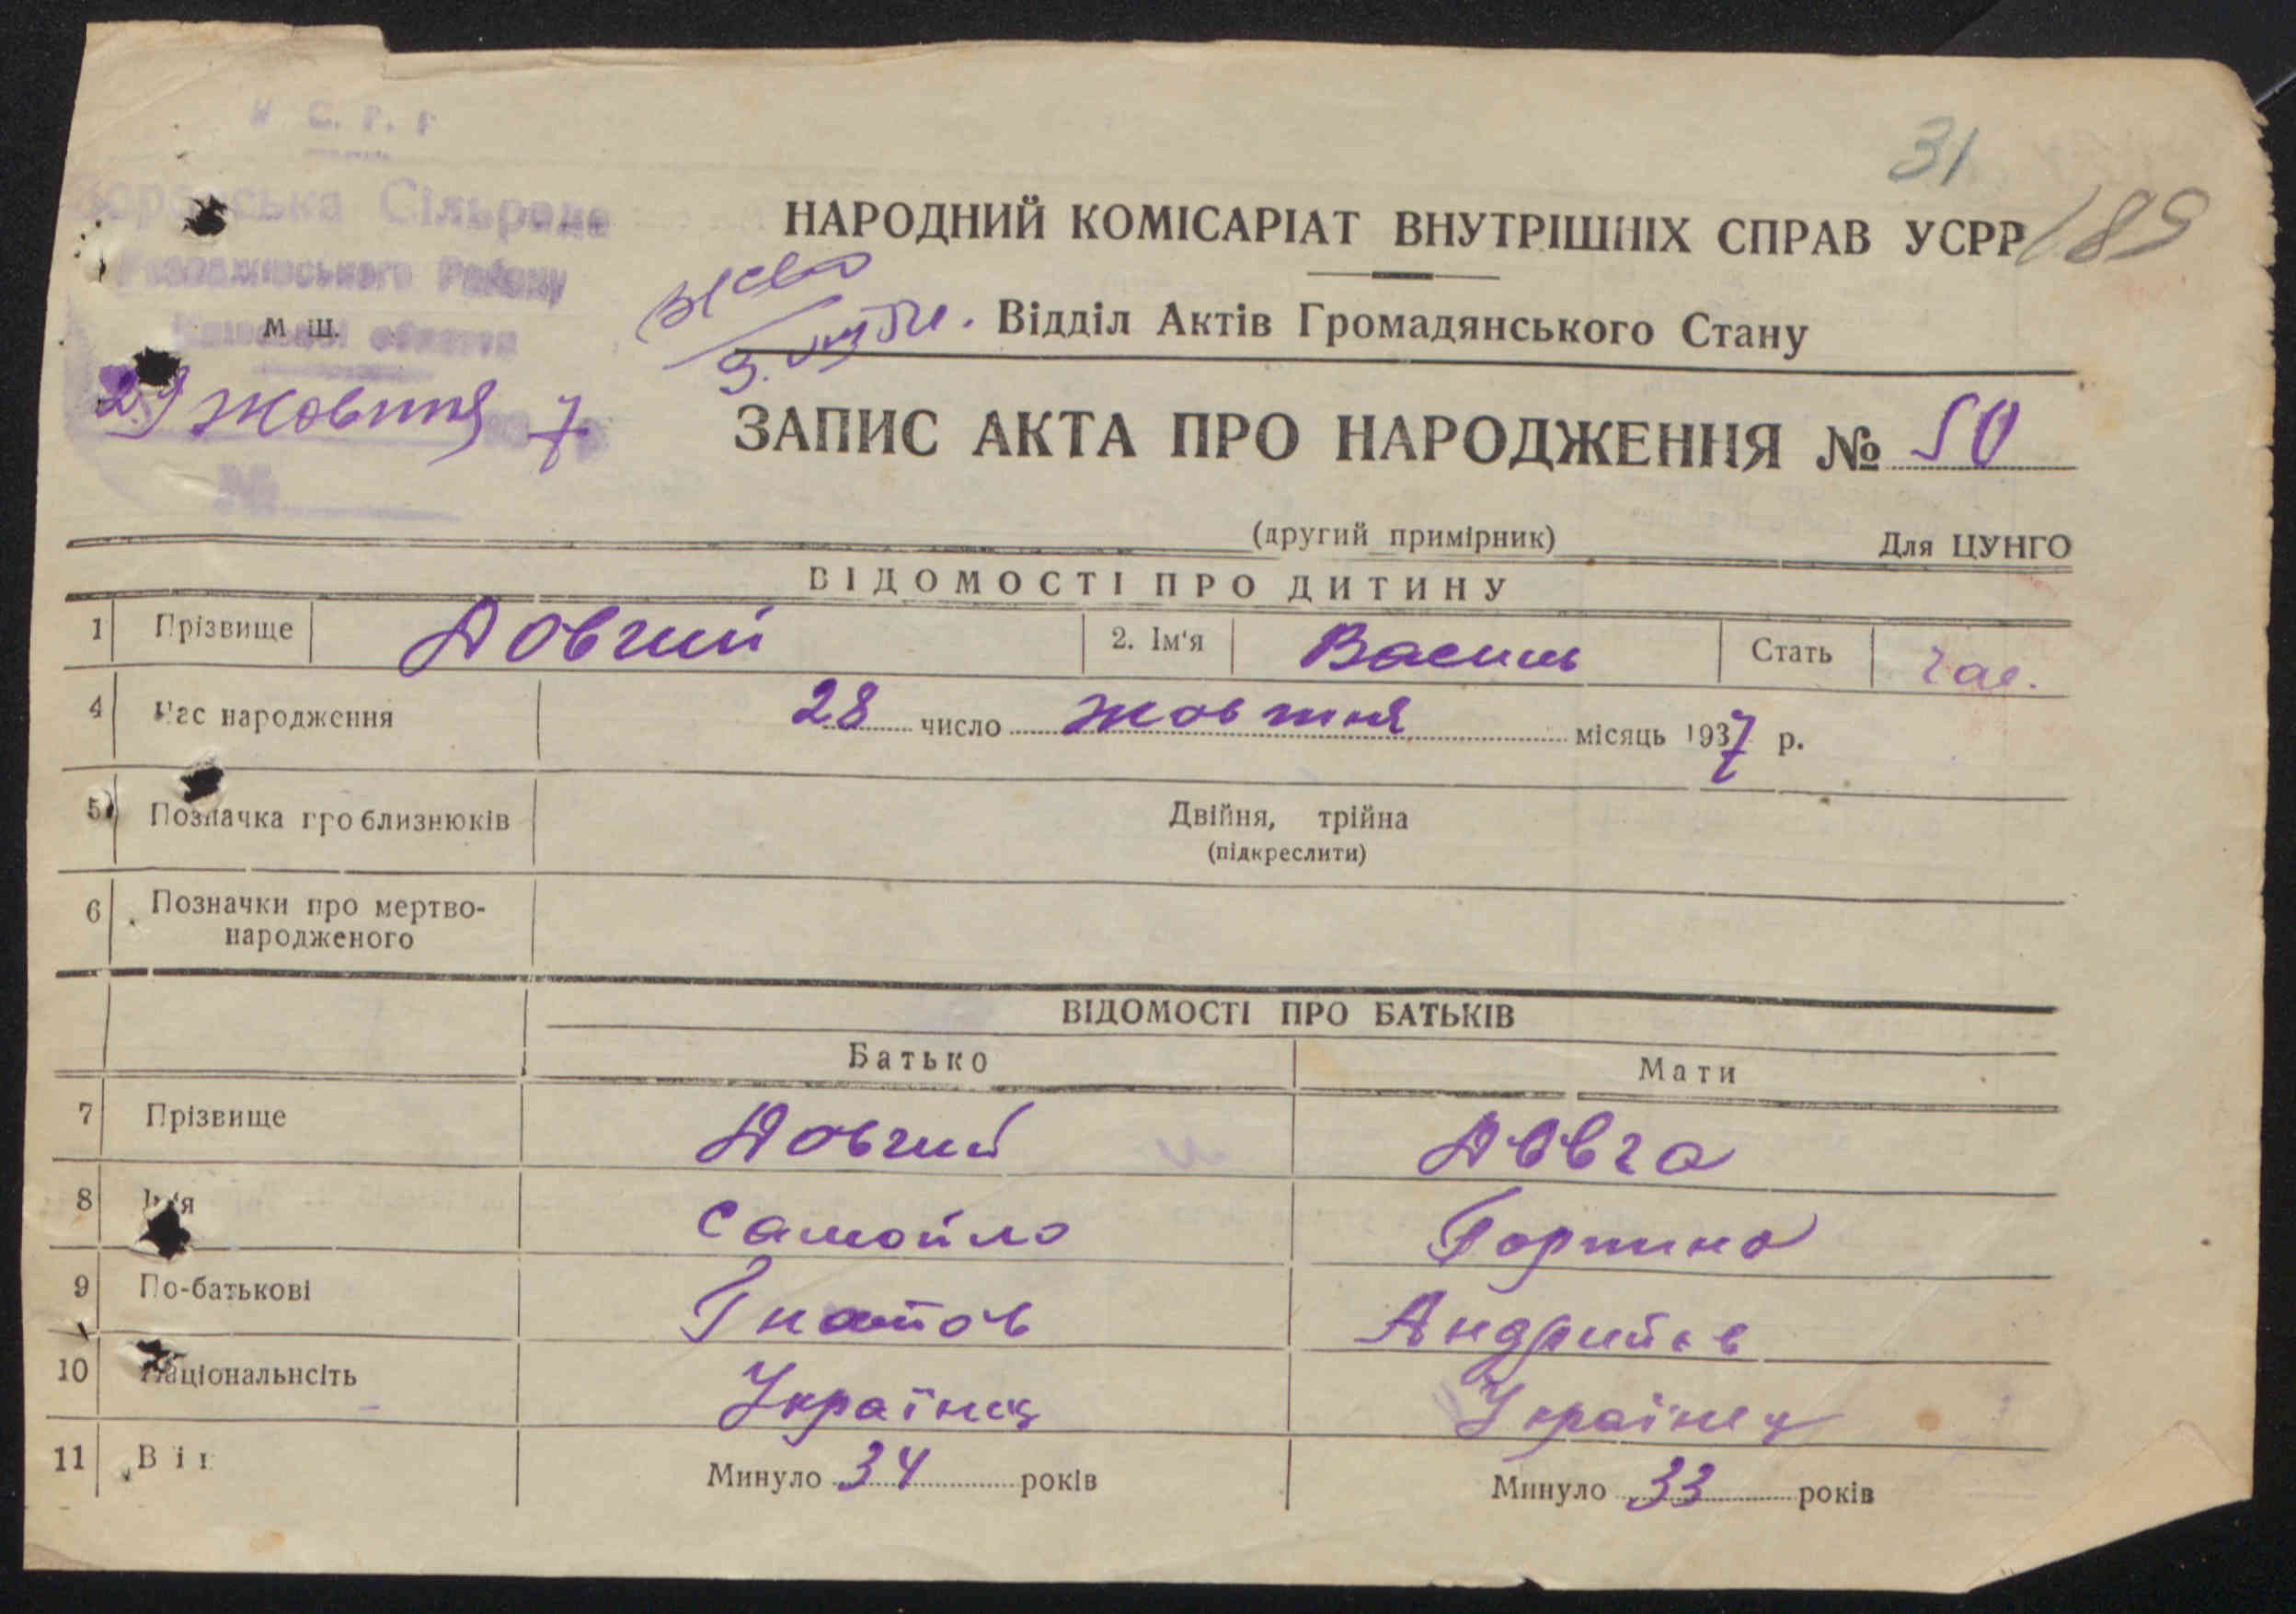 31
189
Сільрада
Району
області
М Ш.
29 жовтня 7
№
НАРОДНИЙ КОМІСАРІАТ ВНУТРІШНІХ СПРАВ УСРР
Відділ Актів Громадянського Стану
ЗАПИС АКТА ПРО НАРОДЖЕННЯ № 50
(другий примірник) Для ЦУНГО
ВІДОМОСТІ ПРО ДИТИНУ
1 Прізвище Довгий 2. Ім'я Василь Стать чол.
4 Час народження 28 число жовтня місяць 1937 р.
5 Позначка про близнюків Двійня, трійна
(підкреслити)
6 Позначки про мертво-
народженого
ВІДОМОСТІ ПРО БАТЬКІВ
Батько Мати
7 Прізвище Довгий Довга
8 Ім'я Самойло Горпина
9 По-батькові Гнатов Андрийов
10 Національнсіть Українец Українец
11 Вік Минуло 34 років Минуло 33 років